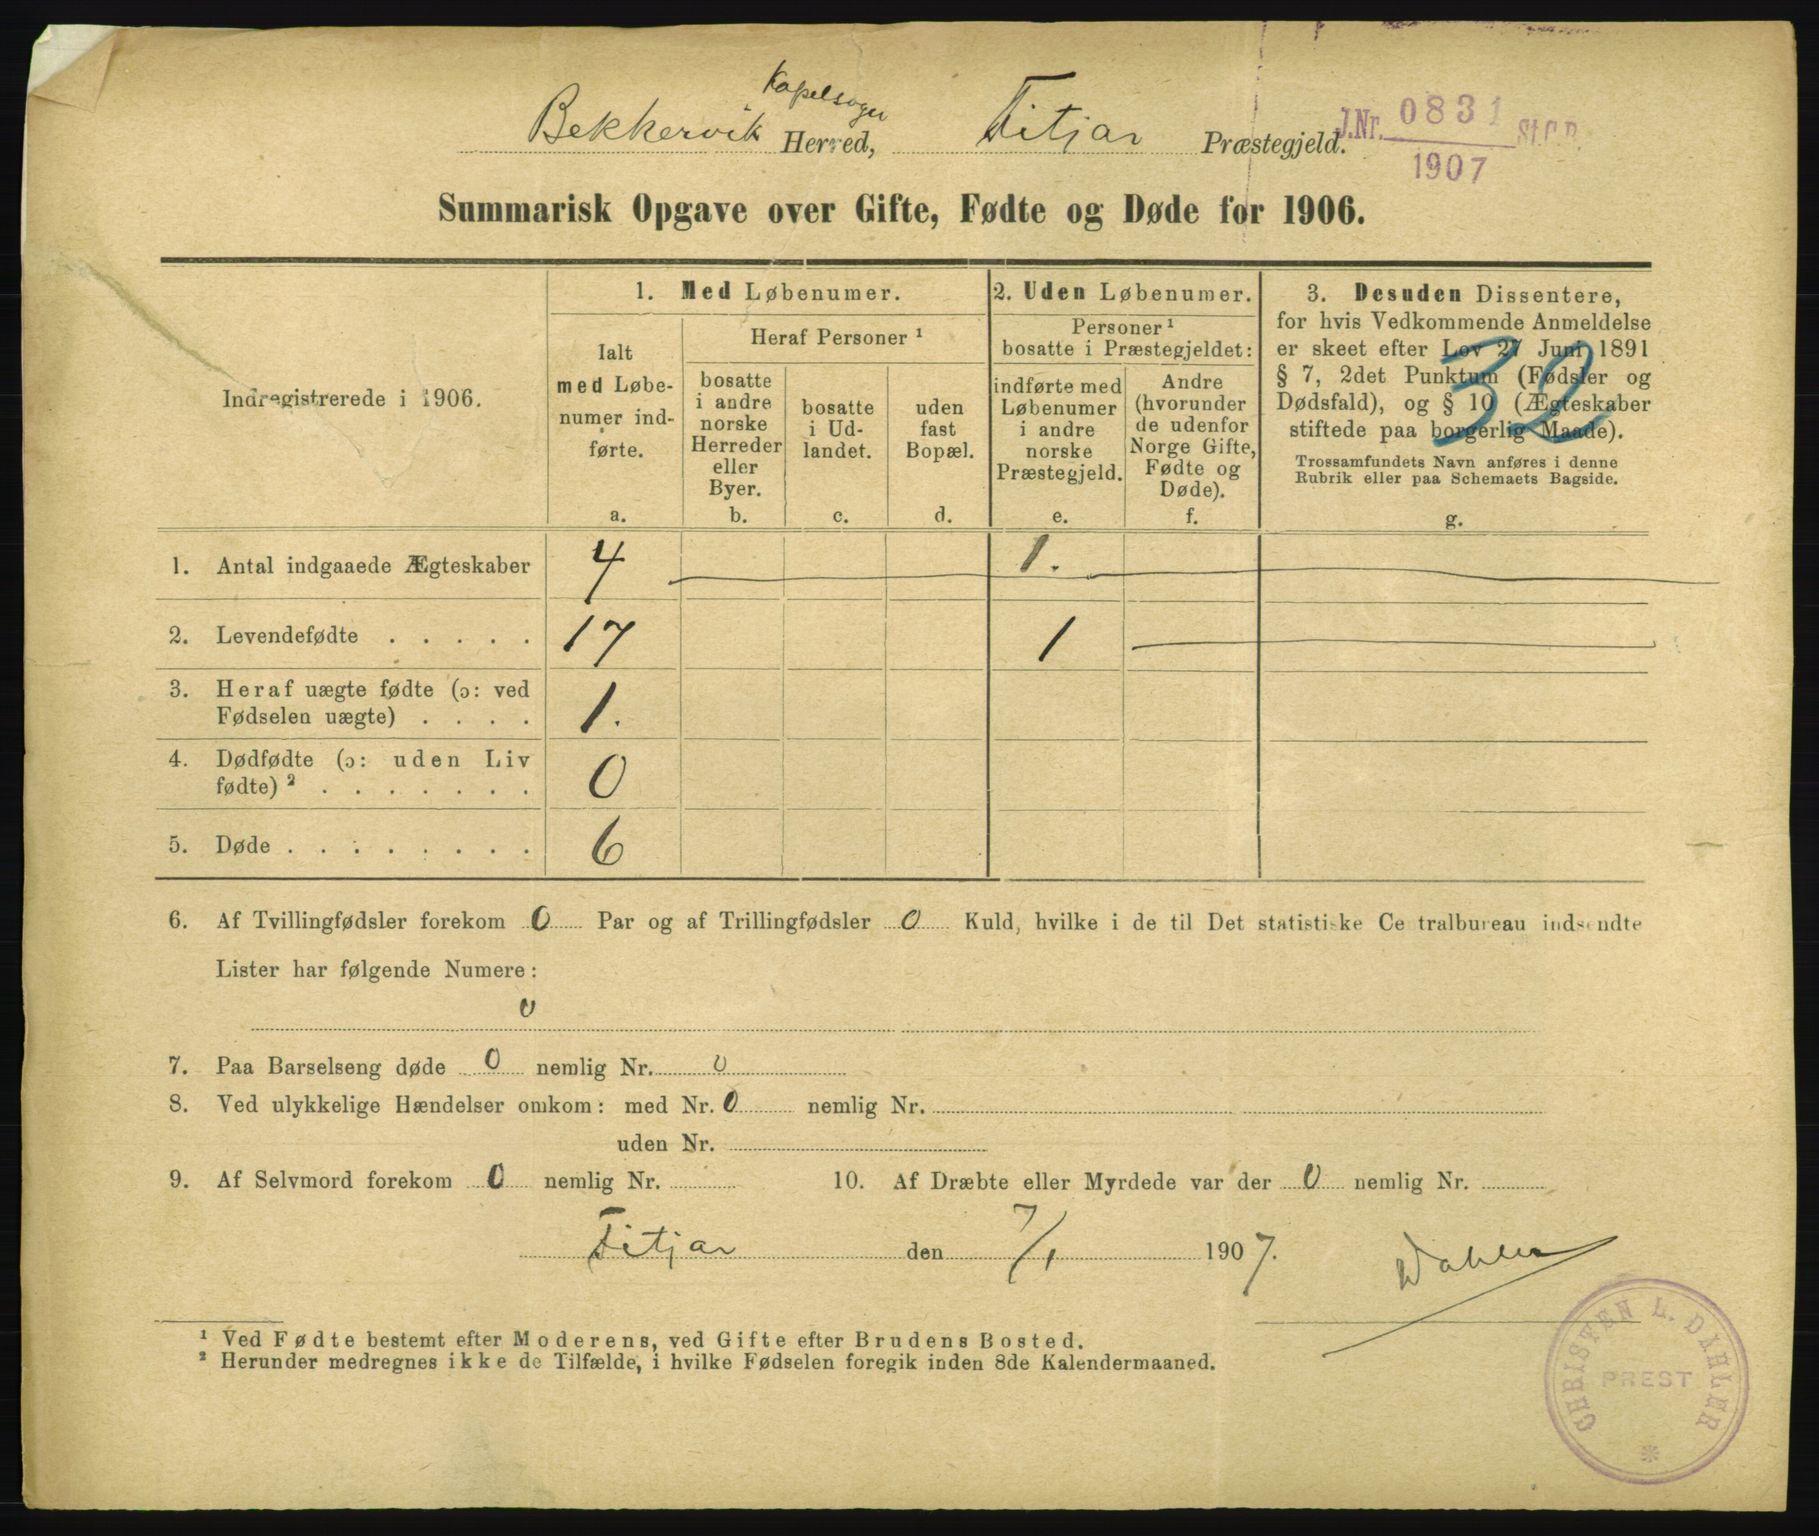 Kapelsogn
Bekkervik Herred, Fitjar Præstegjeld.
J.Nr. 0831 St.C.B.
1907
Summarisk Opgave over Gifte, Fødte og Døde for 1906.
Indregistrerede i 1906.
1. Med Løbenumer.
Ialt
med Løbe-
numer ind-
førte.
a.
Heraf Personer ¹
bosatte
i andre
norske
Herreder
eller
Byer.
b.
bosatte
i Ud-
landet.
c.
uden
fast
Bopæl.
d.
2. Uden Løbenumer.
Personer ¹
bosatte i Præstegjeldet:
indførte med
Løbenumer
i andre
norske
Præstegjeld.
e.
Andre
(hvorunder
de udenfor
Norge Gifte,
Fødte og
Døde).
f.
3. Desuden Dissentere,
for hvis Vedkommende Anmeldelse
er skeet efter Lov 27 Juni 1891
§ 7, 2det Punktum (Fødsler og
Dødsfald), og § 10 (Ægteskaber
stiftede paa borgerlig Maade).
Trossamfundets Navn anføres i denne
Rubrik eller paa Schemaets Bagside.
g.
32
1. Antal indgaaede Ægteskaber 4 1.
2. Levendefødte . . . . . 17 1
3. Heraf uægte fødte (ɔ: ved
Fødselen uægte) . . . . 1.
4. Dødfødte (ɔ: uden Liv
fødte) ² . . . . . . . 0
5. Døde . . . . . . . . 6
6. Af Tvillingfødsler forekom 0 Par og af Trillingfødsler 0 Kuld, hvilke i de til Det statistiske Centralbureau indsendte
Lister har følgende Numere:
0
7. Paa Barselseng døde 0 nemlig Nr. 0
8. Ved ulykkelige Hændelser omkom: med Nr. 0 nemlig Nr.
uden Nr.
9. Af Selvmord forekom 0 nemlig Nr. 10. Af Dræbte eller Myrdede var der 0 nemlig Nr.
Fitjar den 7/1 1907.
Dahler
¹ Ved Fødte bestemt efter Moderens, ved Gifte efter Brudens Bosted.
² Herunder medregnes ikke de Tilfælde, i hvilke Fødselen foregik inden 8de Kalendermaaned.
CHRISTEN L. DAHLER
PREST